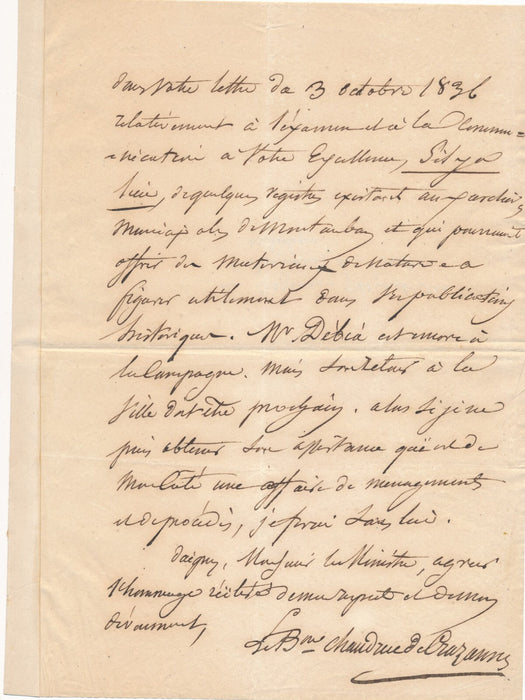 dans votre lettre du 3 octobre 1836
relativement à l'examen et à la commu=
=nication à Votre Excellence, S'il y a
lieu, de quelques registres existant aux archives
municipales de Montauban et qui pourraient
offrir des matériaux de nature a
figurer utilement dans les publications
historiques. Mr Debia est encore à
la Campagne. mais son retour à la
Ville doit être prochain. alors si je ne
puis obtenir son assistance qui est de
mon Coté une affaire de ménagements
et de procédés, je ferai sans lui.
Daignez, Monsieur le Ministre, agréer
l'hommage réitéré de mon respect et de mon
dévouement,
Le Bon Chaudruc de Crazannes